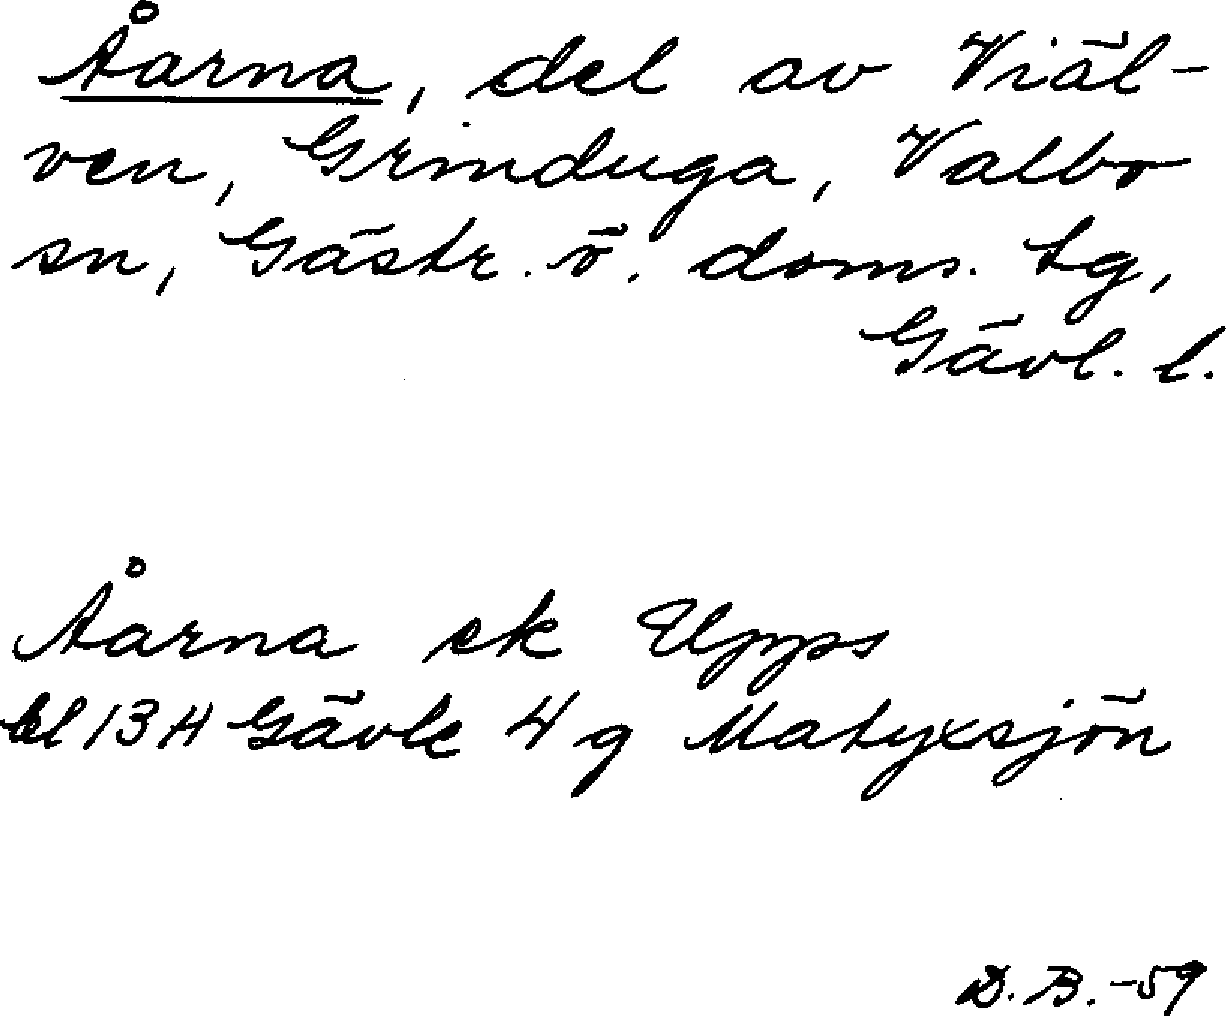 Åarna, del av Viäl-
ven, Grinduga, Valbo
sn, Gästr. ö. doms. tg,
Gävl. l.
Åarna ek Upps
bl 13H Gävle 4g Matyxsjön
D.B.-59